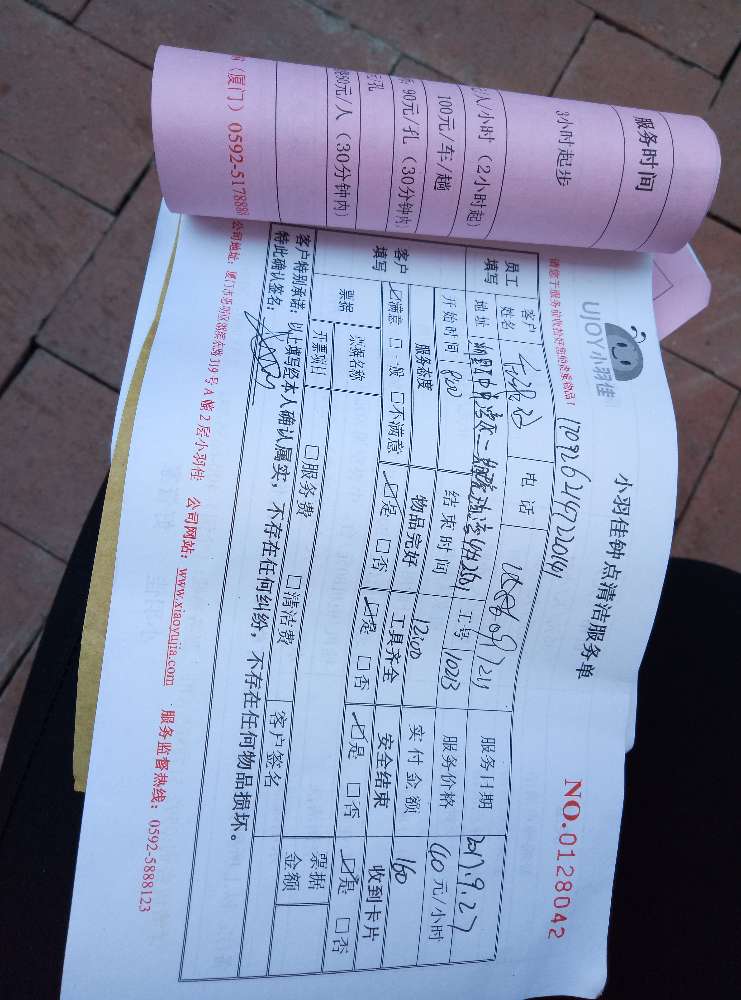 服务时间
3小时起步
人/小时（2小时起）
100元/车/趟
90元/孔（30分钟内
80元/人（30分钟内）
（厦门）0592-517888
UJOY小羽佳
小羽佳钟点清洁服务单
NO.0128042
170926219722041
员工
填写
客户
姓名
电话
服务日期
2017.9.27
地址
工号
10213
服务价格
40元/小时
开始时间
800
结束时间
1200
实付金额
160
客户
填写
服务态度
物品完好
工具齐全
安全结束
收到卡片
☑满意 □一般 □不满意
☑是 □否
☑是 □否
☑是 □否
☑是 □否
票据
票据名称
开票项目
□服务费
□清洁费
客户签名
票据
金额
客户特别承诺：以上填写经本人确认属实，不存在任何纠纷，不存在任何物品损坏。
特此确认签名：
319号A幢2层小羽佳 公司网站：www.xiaoyujia.com 服务监督热线：0592-5888123